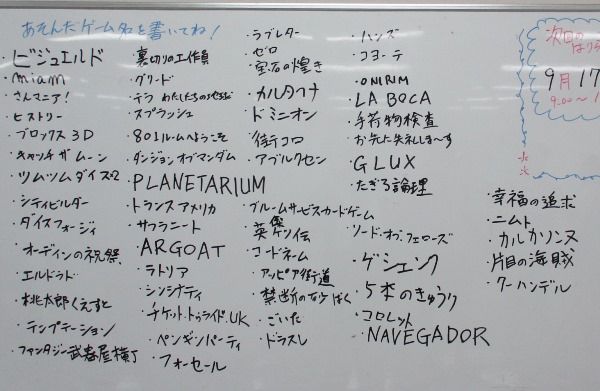 あそんだゲーム名を書いてね!
・ビジュエルド
・miam
・さんマニア!
・ヒストリー
・ブロックス3D
・キャッチザムーン
・ツムツムダイス×2
・シティビルダー
・ダイスフォージ
・オーディンの祝祭
・エルドラド
・桃太郎くえすと
・テンプテーション
・ファンタジー武器屋横丁
・裏切りの工作員
・グリード
・テラ わたしたちの地球
・スプラッシュ
・801ルームへようこそ
・ダンジョンオブマンダム
・PLANETARIUM
・トランスアメリカ
・サフラニート
・ARGOAT
・ラトリア
・シンシナティ
・チケットトゥライド.UK
・ペンギンパーティ
・フォーセール
・ラブレター
・ゼロ
・宝石の煌き
・カルタヘナ
・ドミニオン
・街コロ
・アブルクセン
・ブルームサービスカードゲーム
・英傑伝
・コードネーム
・アッピア街道
・禁断のならばく
・ごいた
・ドラスレ
・ハンズ
・コヨーテ
・ONIRIM
・LA BOCA
・手荷物検査
・お先に失礼しま〜す
・GLUX
・たぎる論理
・ソード・オブ・フェローズ
・ゲシェンク
・5本のきゅうり
・コロレット
・NAVEGADOR
・幸福の追求
・ニムト
・カルカソンヌ
・片目の海賊
・ターハンデル
次回の
9月17
9:00〜1